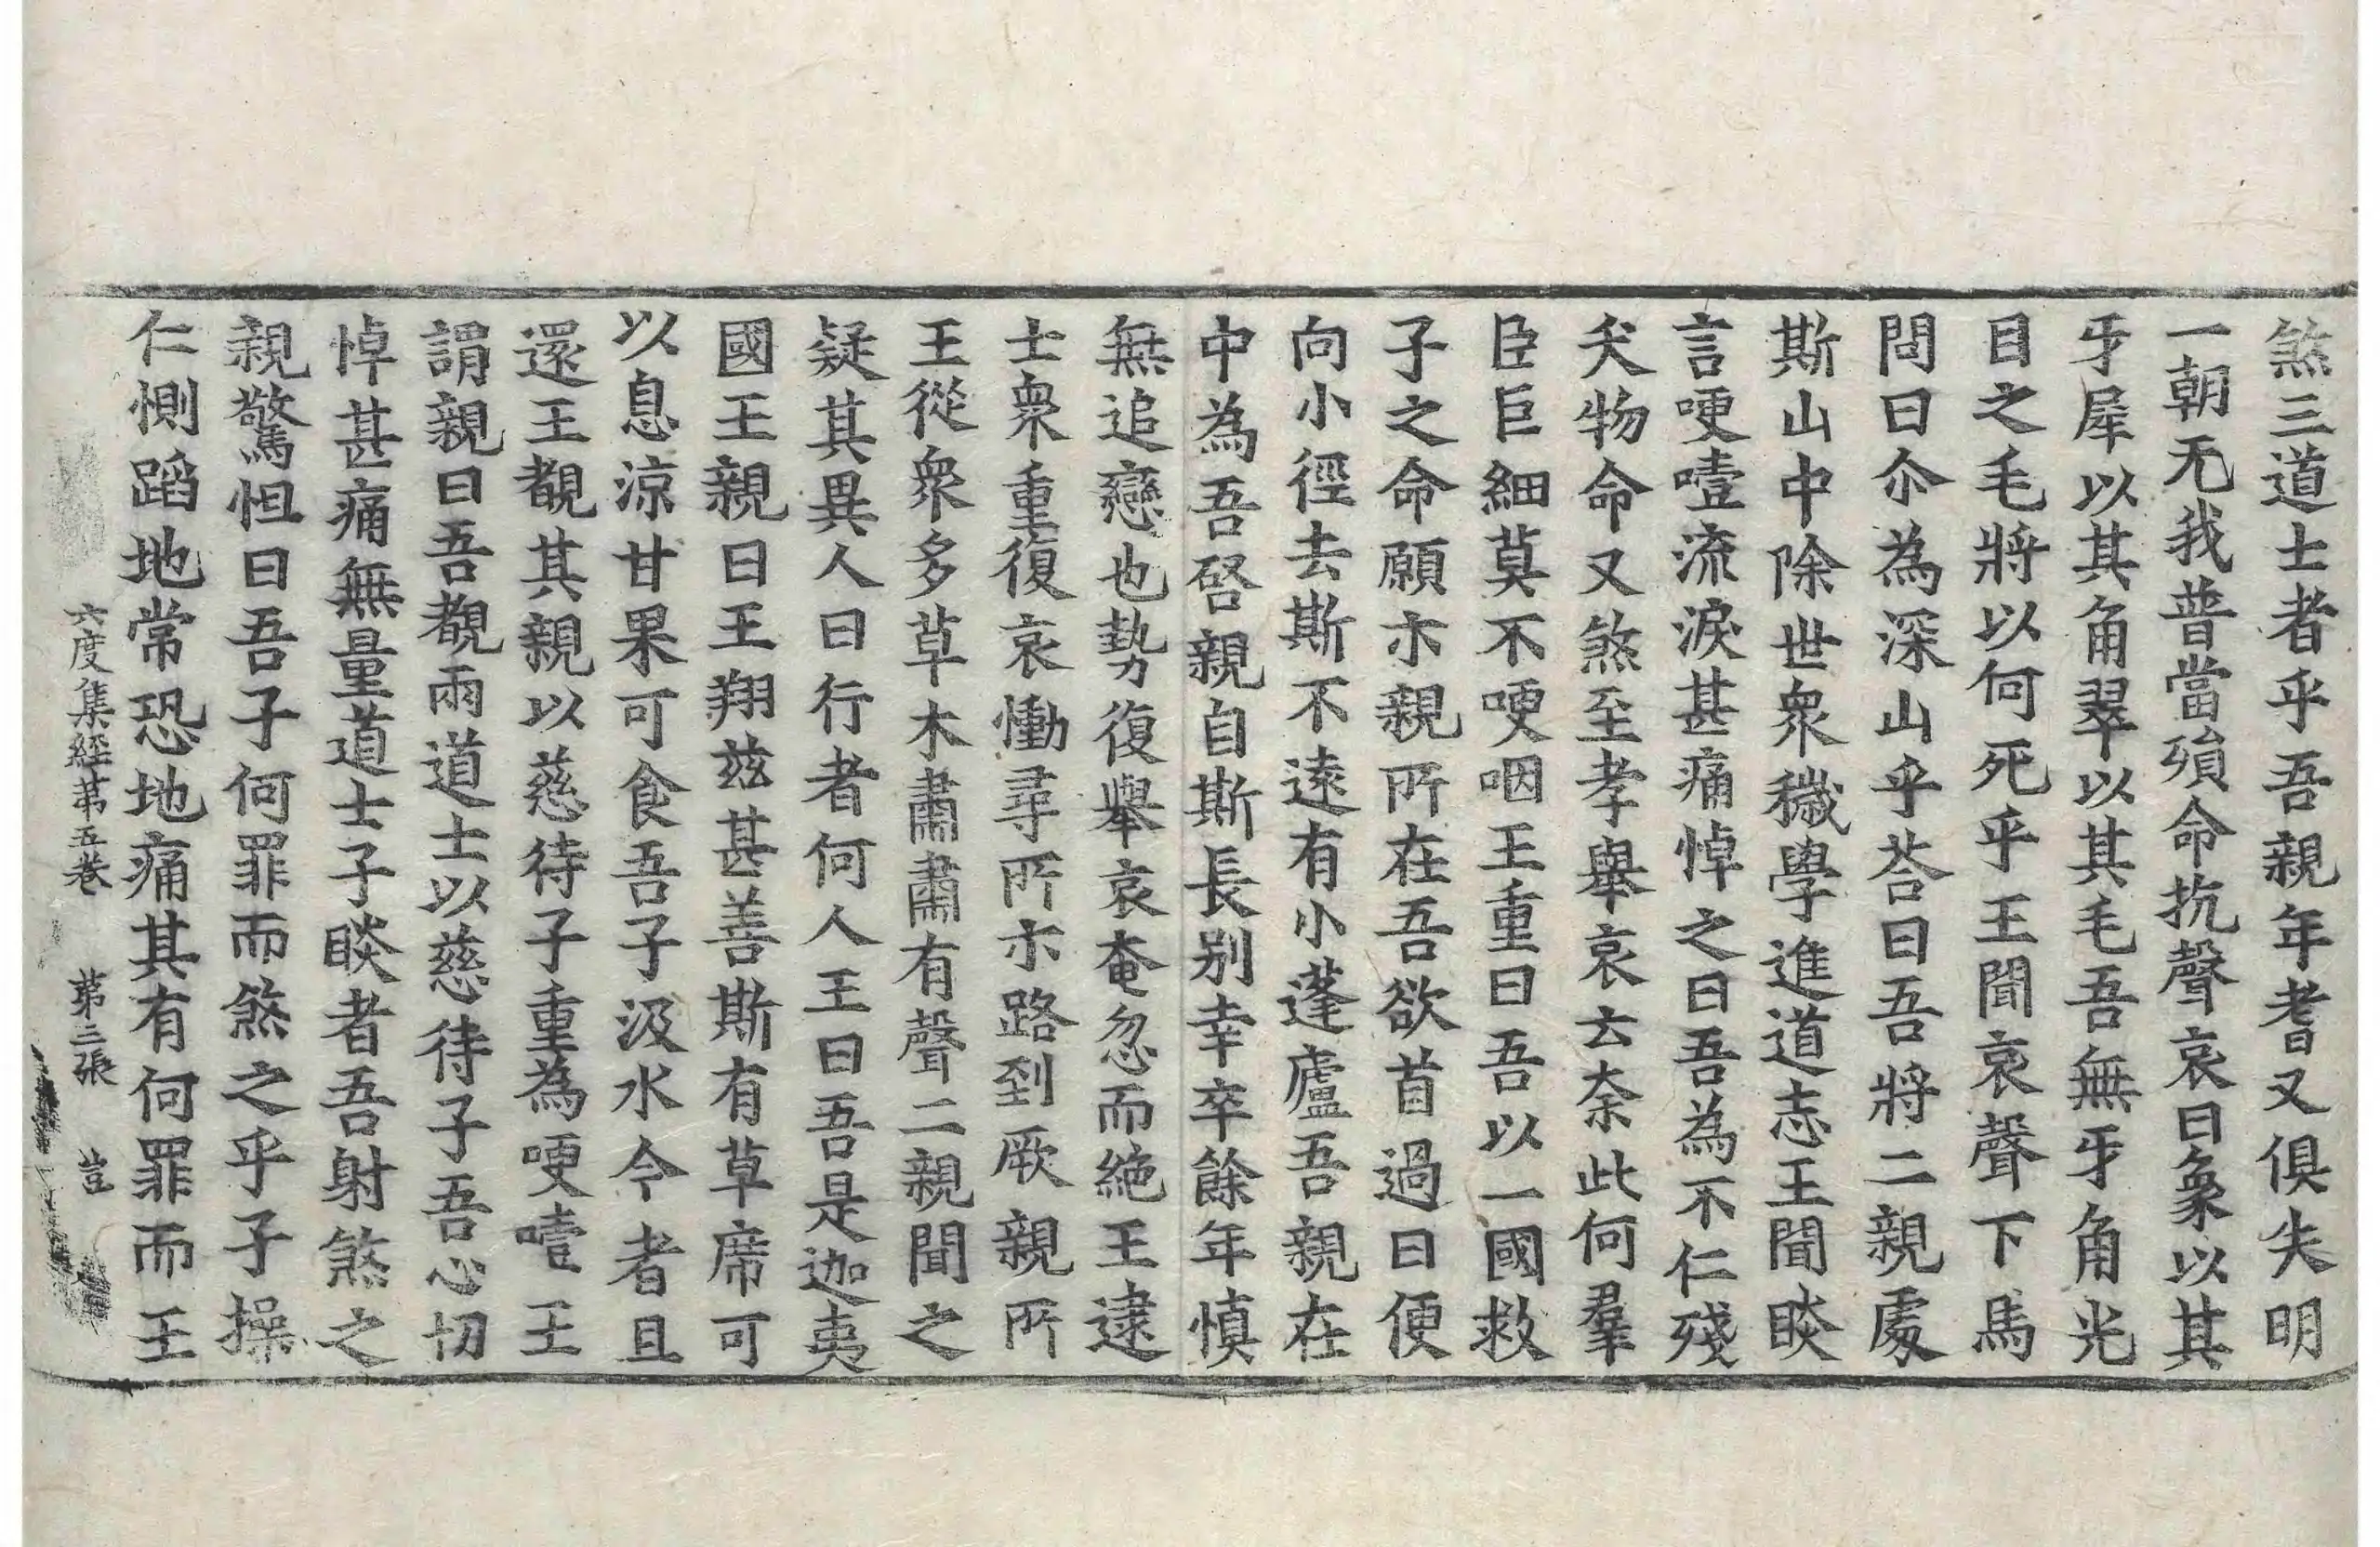 煞三道士者乎吾親年耆又俱失明
一朝无我普當殞命抗聲哀曰象以其
牙犀以其角翠以其毛吾無牙角光
目之毛將以何死乎王聞哀聲下馬
問曰尒為深山乎荅曰吾將二親處
斯山中除世衆穢學進道志王聞睒
言哽噎流淚甚痛悼之曰吾為不仁殘
夭物命又煞至孝舉哀云奈此何羣
臣巨細莫不哽咽王重曰吾以一國救
子之命願示親所在吾欲首過曰便
向小徑去斯不遠有小蓬廬吾親在
中為吾啓親自斯長別幸卒餘年慎
無追戀也勢復舉哀奄忽而絕王逮
士衆重復哀慟尋所示路到厥親所
王從衆多草木肅肅有聲二親聞之
疑其異人曰行者何人王曰吾是迦夷
國王親曰王翔兹甚善斯有草席可
以息涼甘果可食吾子汲水今者且
還王覩其親以慈待子重為哽噎王
謂親曰吾覩兩道士以慈待子吾心切
悼甚痛無量道士子睒者吾射煞之
親驚怛曰吾子何罪而煞之乎子操
仁惻蹈地常恐地痛其有何罪而王
六度集經苐五卷 苐三張 豈